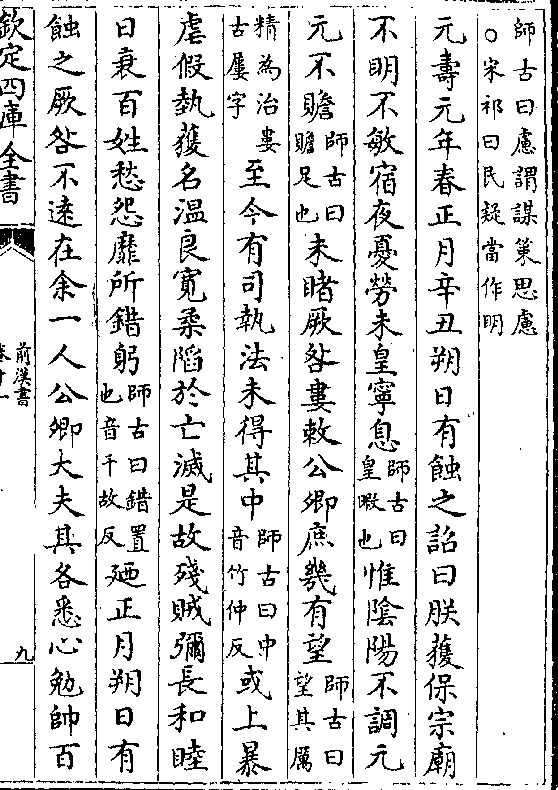 師古曰慮謂謀策思慮
○宋祁曰民疑當作明
元壽元年春正月辛丑朔日有蝕之詔曰朕獲保宗廟
不明不敏宿夜憂勞未皇寧息師古曰皇暇也惟陰陽不調元
元不贍師古曰贍足也未睹厥咎婁敕公卿庶幾有望師古曰望其厲
精為治婁古屢字至今有司執法未得其中師古曰中音竹仲反或上暴
虐假埶獲名溫良寬柔陷於亡滅是故殘賊彌長和睦
日衰百姓愁怨靡所錯躬師古曰錯置也音千故反廼正月朔日有
蝕之厥咎不遠在余一人公卿大夫其各悉心勉帥百
欽定四庫全書
前漢書
卷十一
九